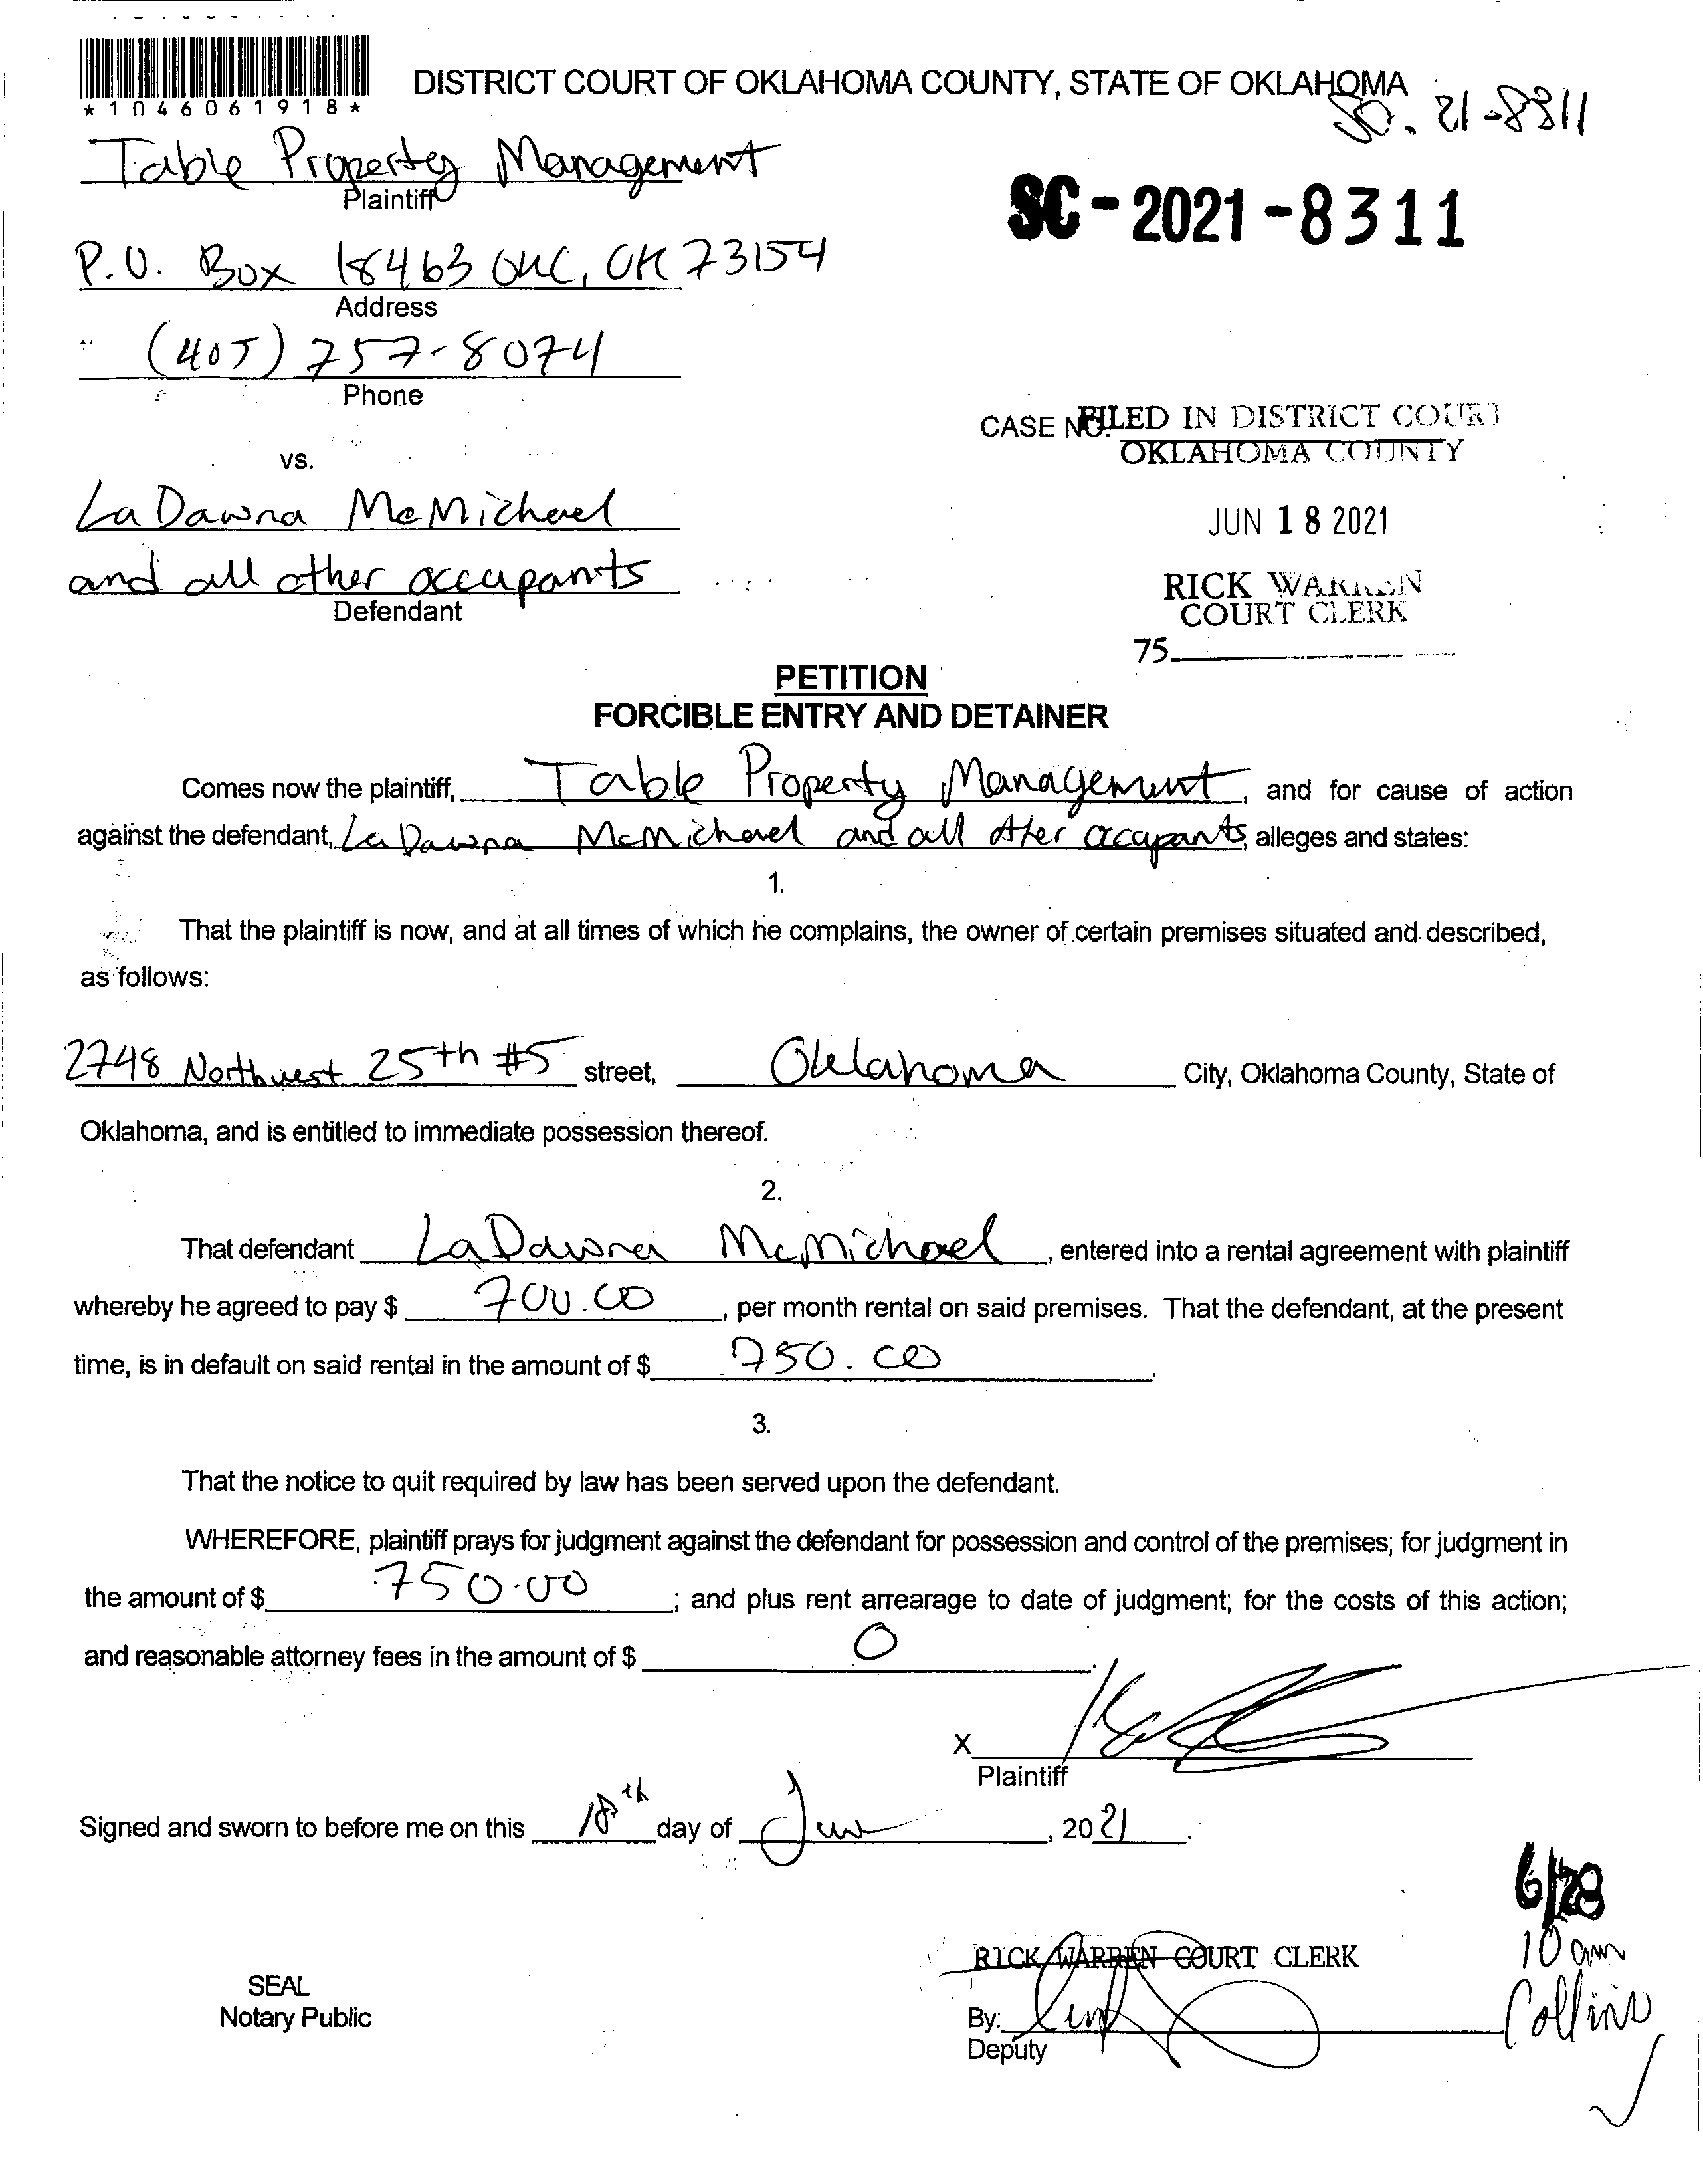 *1046061918*
DISTRICT COURT OF OKLAHOMA COUNTY, STATE OF OKLAHOMA
SC. 21-8311
Table Property Management
Plaintiff
SC-2021-8311
P.O. Box 18463 OKC, OK 73154
Address
(405) 757-8074
Phone
CASE NO. FILED IN DISTRICT COURT
OKLAHOMA COUNTY
vs.
LaDawna McMichael
JUN 18 2021
and all other occupants
Defendant
RICK WARREN
COURT CLERK
75
PETITION
FORCIBLE ENTRY AND DETAINER
Comes now the plaintiff, Table Property Management, and for cause of action
against the defendant, LaDawna McMichael and all other occupants, alleges and states:
1.
That the plaintiff is now, and at all times of which he complains, the owner of certain premises situated and described,
as follows:
2748 Northwest 25th #5 street, Oklahoma City, Oklahoma County, State of
Oklahoma, and is entitled to immediate possession thereof.
2.
That defendant LaDawna McMichael, entered into a rental agreement with plaintiff
whereby he agreed to pay $ 700.00, per month rental on said premises. That the defendant, at the present
time, is in default on said rental in the amount of $ 750.00.
3.
That the notice to quit required by law has been served upon the defendant.
WHEREFORE, plaintiff prays for judgment against the defendant for possession and control of the premises; for judgment in
the amount of $ 750.00; and plus rent arrearage to date of judgment; for the costs of this action;
and reasonable attorney fees in the amount of $ 0.
X
Plaintiff
Signed and sworn to before me on this 18th day of June, 2021.
6/28
10 am
Collins
RICK WARREN COURT CLERK
SEAL
Notary Public
By:
Deputy